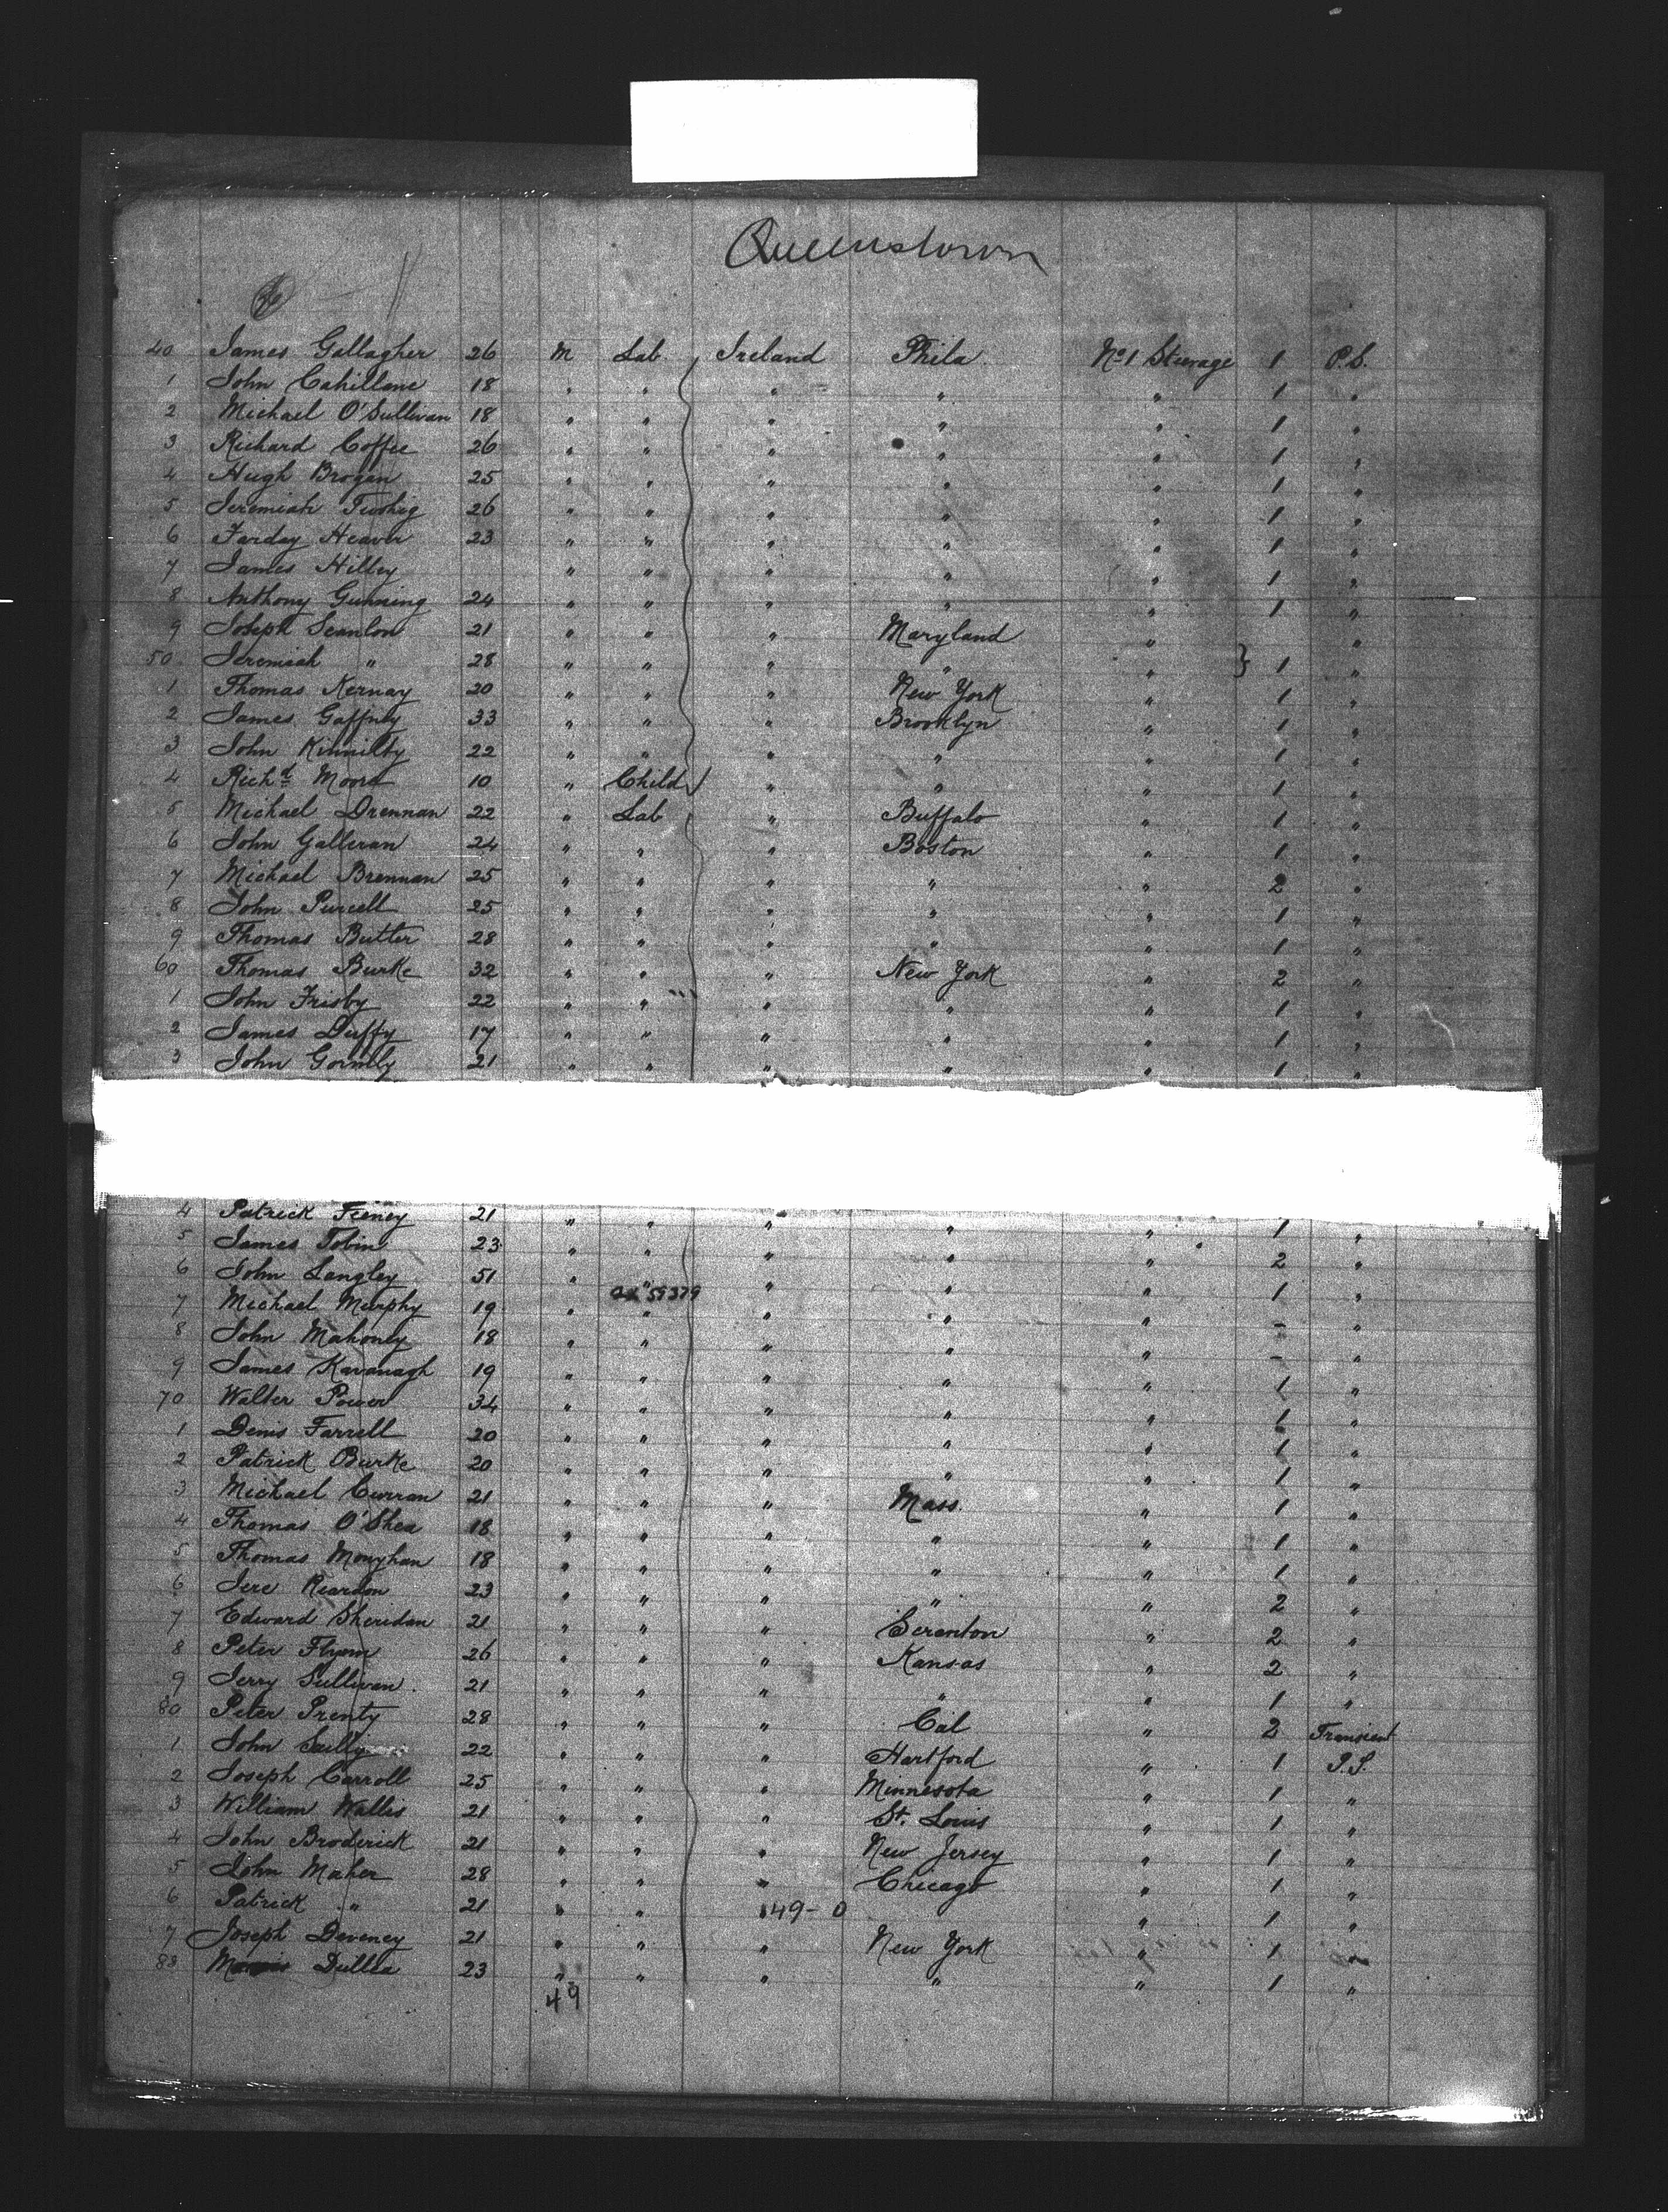 Queenstown
40 James Gallagher 26 M Lab Ireland Phila. No. 1 Steerage 1 P.S.
1 John Cahillane 18 " " " " " 1 "
2 Michael O'Sullivan 18 " " " " " 1 "
3 Richard Coffee 26 " " " " " 1 "
4 Hugh Brogan 25 " " " " " 1 "
5 Jeremiah Twohig 26 " " " " " 1 "
6 Farday Heaver 23 " " " " " 1 "
7 James Hilley " " " " " 1 "
8 Anthony Gunning 24 " " " " " 1 "
9 Joseph Scanlon 21 " " " Maryland " "
50 Jeremiah " 28 " " " " " } 1 "
1 Thomas Kernay 20 " " " New York " 1 "
2 James Gaffney 33 " " " Brooklyn " 1 "
3 John Kinnilty 22 " " " " " 1 "
4 Richd Moore 10 " Child " " " 1 "
5 Michael Drennan 22 " Lab " Buffalo " 1 "
6 John Galleran 24 " " " Boston " 1 "
7 Michael Brennan 25 " " " " " 2 "
8 John Purcell 25 " " " " " 1 "
9 Thomas Butter 28 " " " " " 1 "
60 Thomas Burke 32 " " " New York " 2 "
1 John Frisby 22 " " " " " 1 "
2 James Duffy 17 " " " " " 1 "
3 John Gormly 21 " " " " " 1 "
4 Patrick Feeney 21 " " " " " 1 "
5 James Tobin 23 " " " " " 2 "
6 John Langley 51 " " " " " 1 "
59379
7 Michael Murphy 19 " " " " " - "
8 John Mahoney 18 " " " " " - "
9 James Kavanagh 19 " " " " " 1 "
70 Walter Power 34 " " " " " 1 "
1 Denis Farrell 20 " " " " " 1 "
2 Patrick Burke 20 " " " " " 1 "
3 Michael Curran 21 " " " Mass. " 1 "
4 Thomas O'Shea 18 " " " " " 1 "
5 Thomas Moughan 18 " " " " " 1 "
6 Jere Reardon 23 " " " " " 2 "
7 Edward Sheridan 21 " " " Scranton " 2 "
8 Peter Flynn 26 " " " Kansas " 2 "
9 Jerry Sullivan 21 " " " " " 1 "
80 Peter Prenty 28 " " " Cal " 2 Transient
1 John 22 " " " Hartford " 1 P.S.
2 Joseph Carroll 25 " " " Minnesota " 1 "
3 William Wallis 21 " " " St. Louis " 1 "
4 John Broderick 21 " " " New Jersey " 1 "
5 John Maher 28 " " " Chicago " 1 "
6 Patrick " 21 " " 149-0 " 1 "
7 Joseph Deveney 21 " " " New York " 1 "
88 Dullea 23 " " " " " 1 "
49